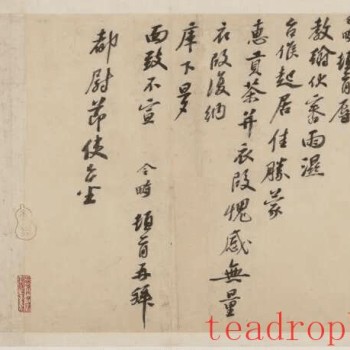 令畤頓首辱
教翰伏審雨濕
台候起居佳勝蒙
惠貢茶并衣段愧感無量
衣段復納
庫下旦夕
面致不宣 令畤頓首再拜
都尉節使台坐
teadrop